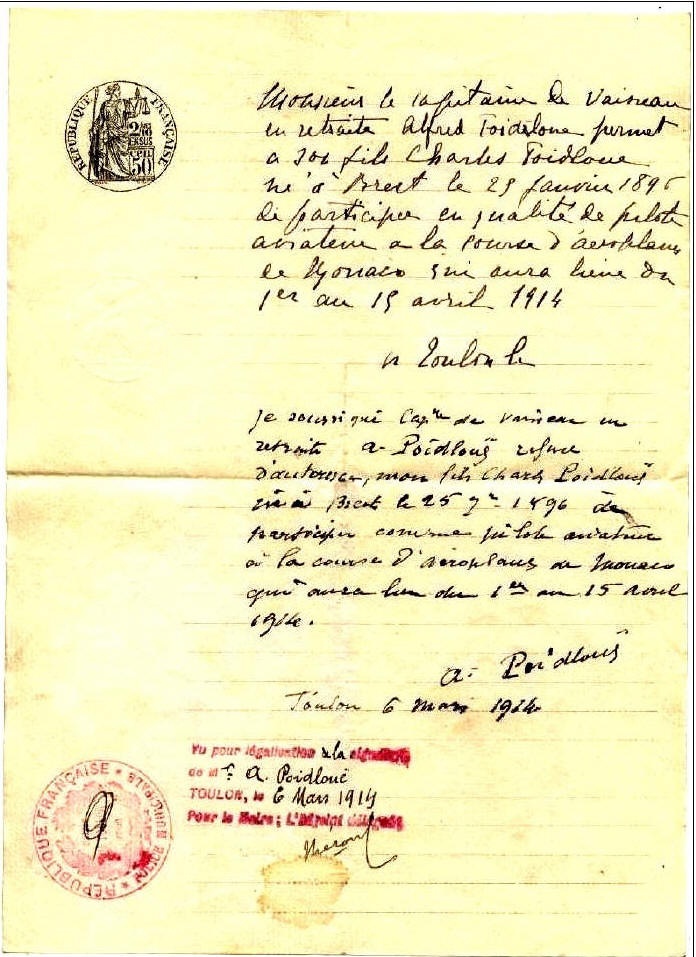 RÉPUBLIQUE FRANÇAISE
50
Monsieur le capitaine de Vaisseau
en retraite Alfred Poidloue permet
a son fils Charles Poidloue
né à Brest le 25 Janvier 1896
de participer en qualité de pilote
aviateur a la course d'aéroplanes
de Monaco qui aura lieue du
1er au 15 avril 1914
Toulon le
Je soussigné Capne de vaisseau en
retraite A. Poidloüe refuse
d'autoriser, mon fils Charles Poidloüe
né à Brest le 25 1896 de
participer comme pilote aviateur
à la course d'aéroplanes de Monaco
qui aura lieu du 1er au 15 avril
1914.
A. Poidloüe
Toulon 6 mars 1914
Vu pour légalisation de la signature
de Mr A. Poidloüe
TOULON, le 6 Mars 1914
Pour le Maire; L'Adjoint délégué
RÉPUBLIQUE FRANÇAISE ★ POLICE MUNICIPALE ★